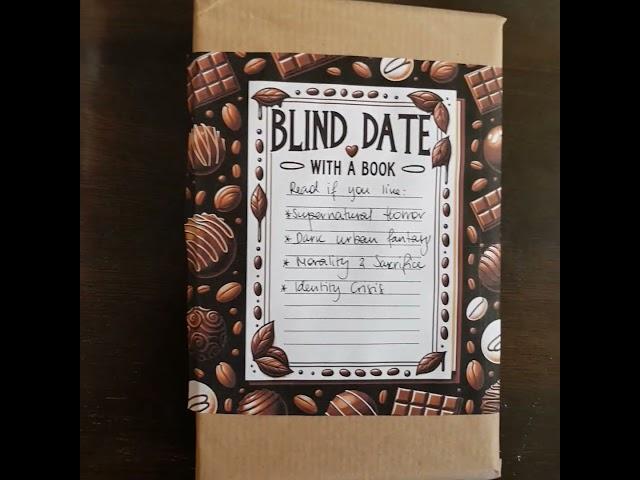 BLIND DATE
WITH A BOOK
Read if you like:
* Supernatural Horror
* Dark urban fantasy
* Morality & Sacrifice
* Identity Crisis